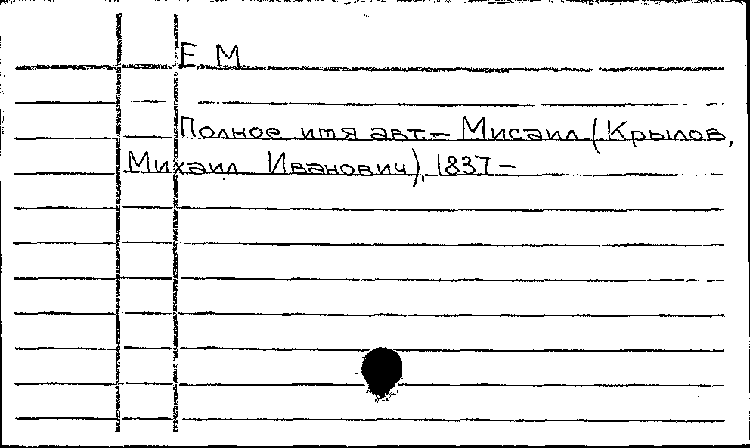 Е М
Полное имя авт.– Мисаил (Крылов,
Михаил Иванович), 1837 –